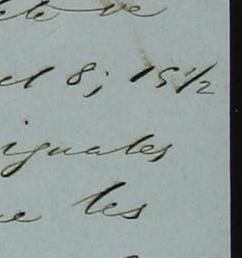 ve
el 8; 15½
iguales
ue les